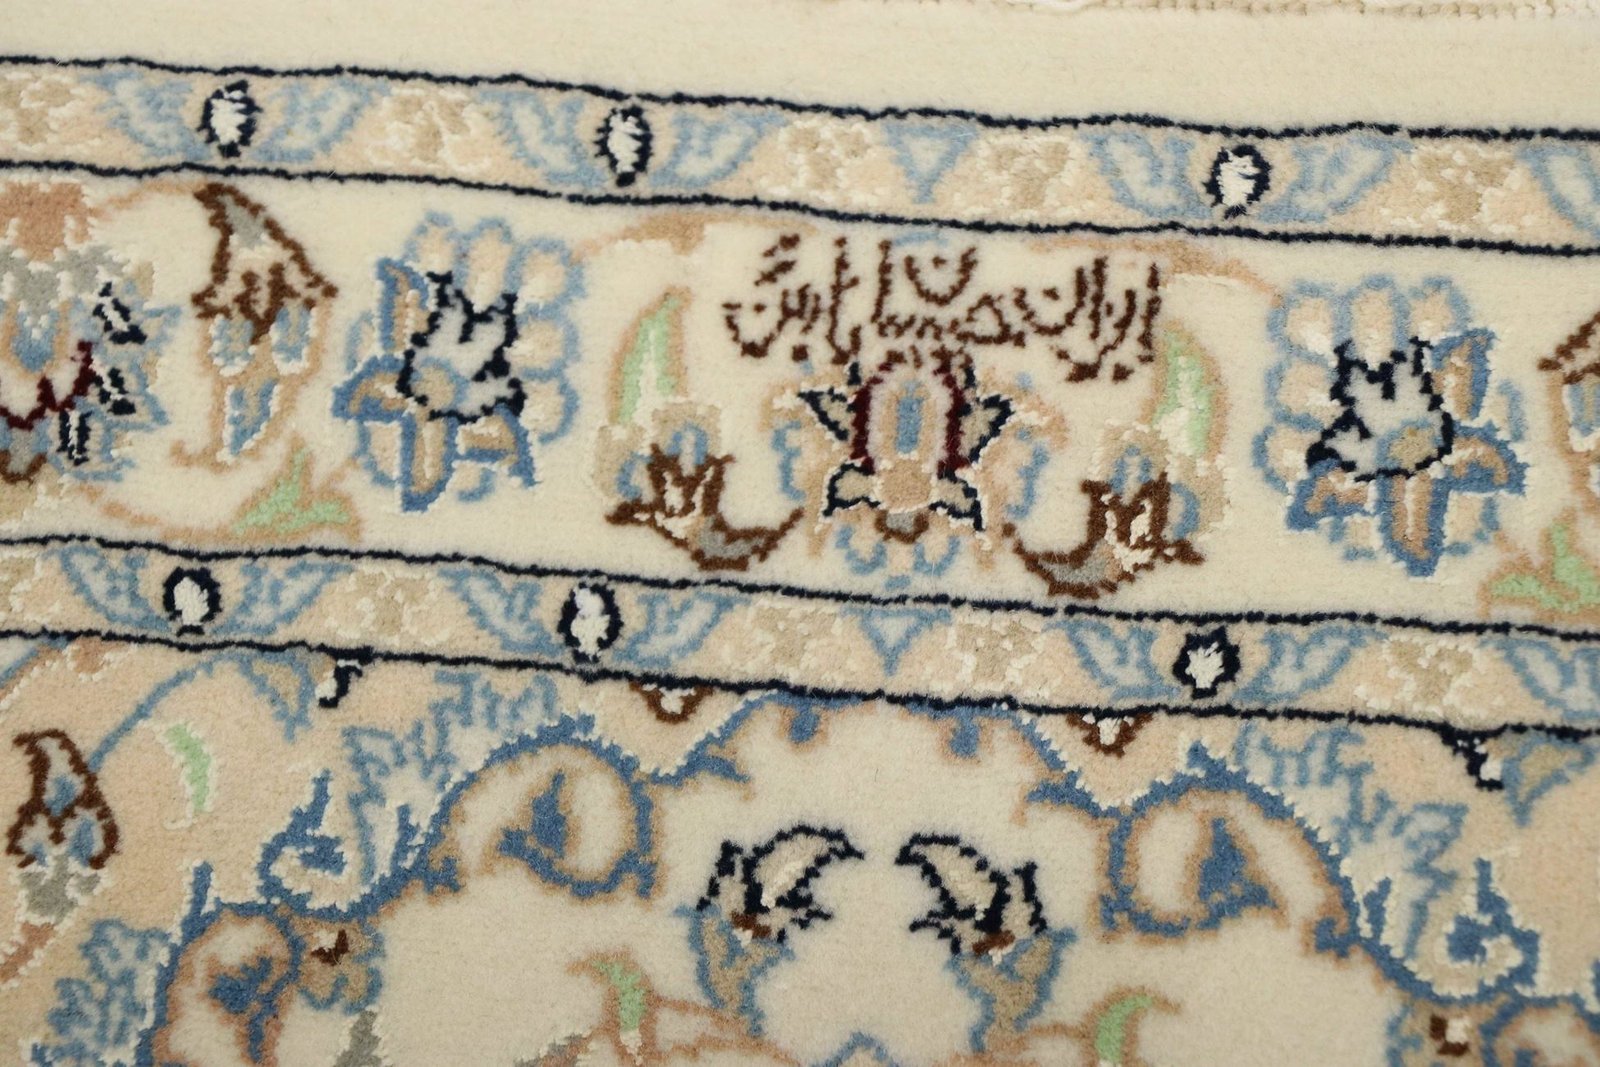 ایران حبیبیان نائین